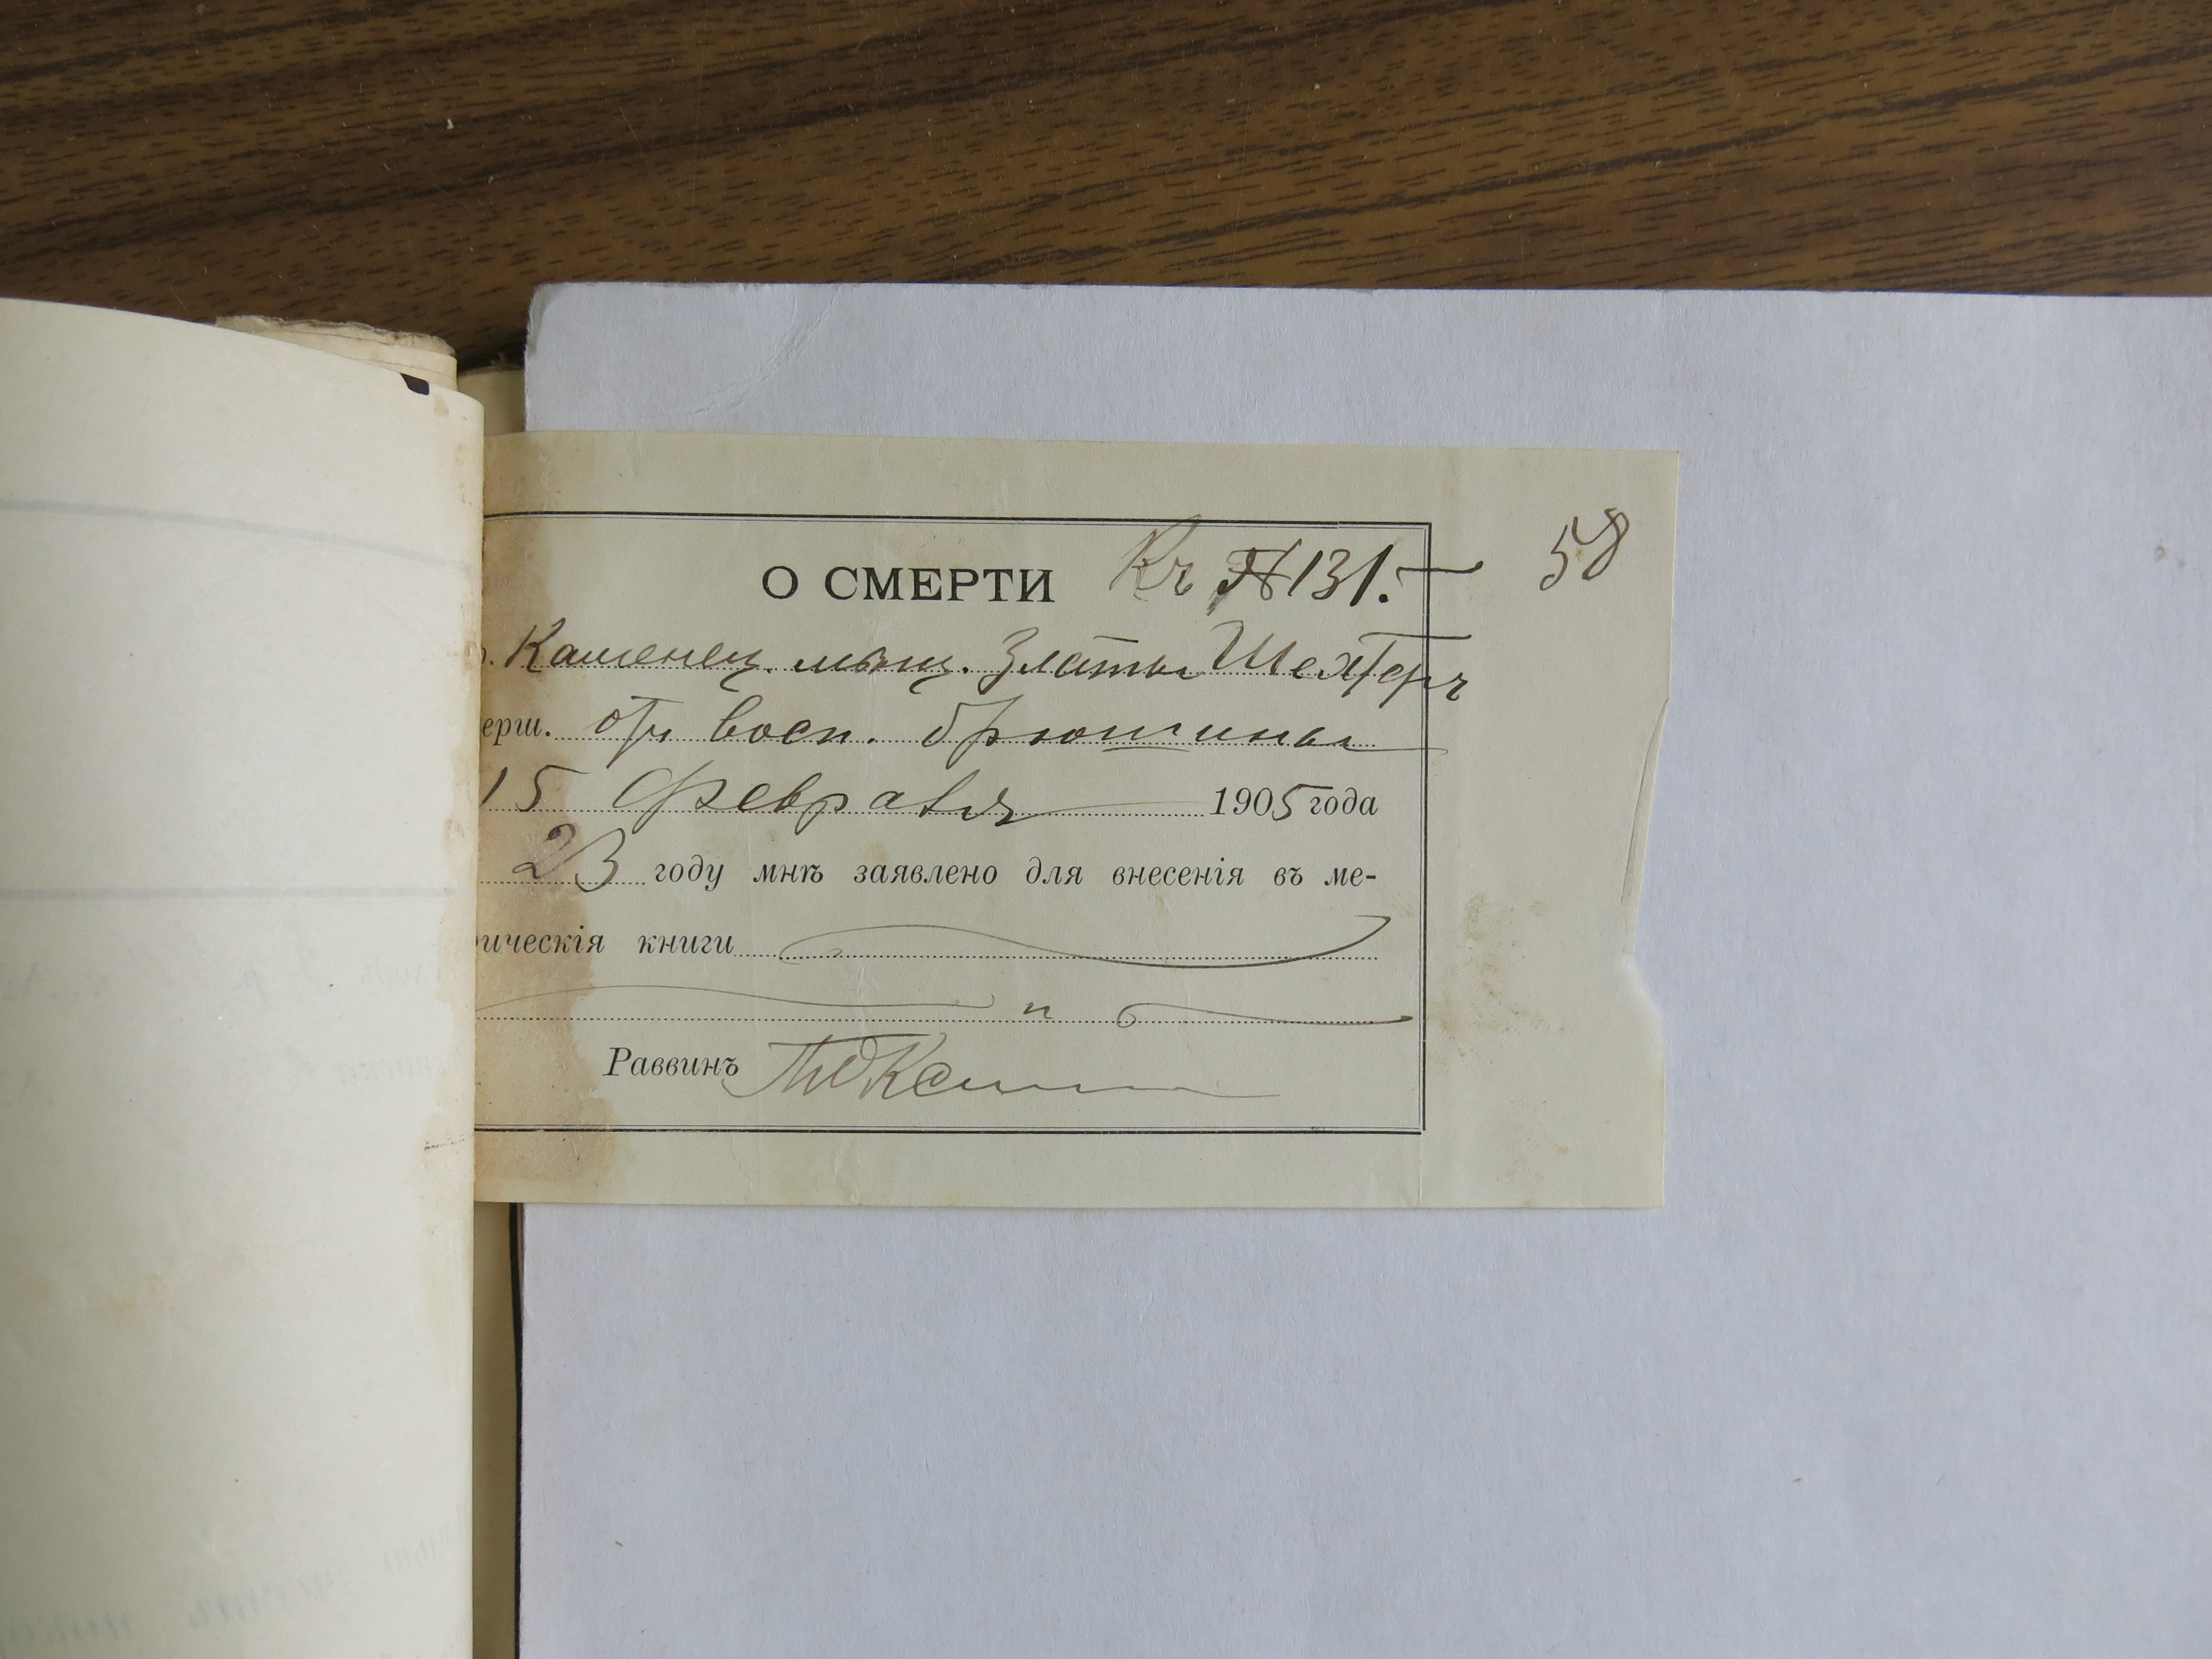 58
О СМЕРТИ Къ № 131.
Каменец. мѣщ. Златы Шехтеръ
ерш. отъ восп. брюшины
15 Февраля 1905 года
23 году мнѣ заявлено для внесенія въ ме-
ическія книги
"
Раввинъ